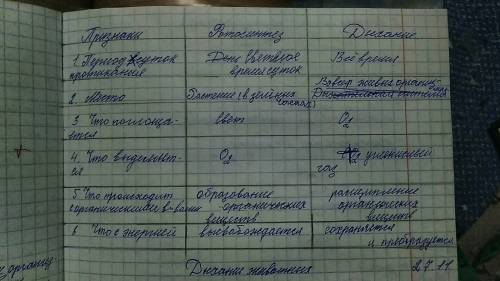 Признаки Фотосинтез Дыхание
1. Период суток Световое Всё время
протекания время суток
2. Место Растение (в зелёных Во всех живых
частях)
3 Что поглоща- свет O2
ется
4. Что выделяет- O2 углекислый
ся газ
5. Что происходит образование расщепление
с органическими в-вами органических органических
веществ веществ
6 Что с энергией высвобождается сохраняется
и преобразуется
Дыхание животных 27.11